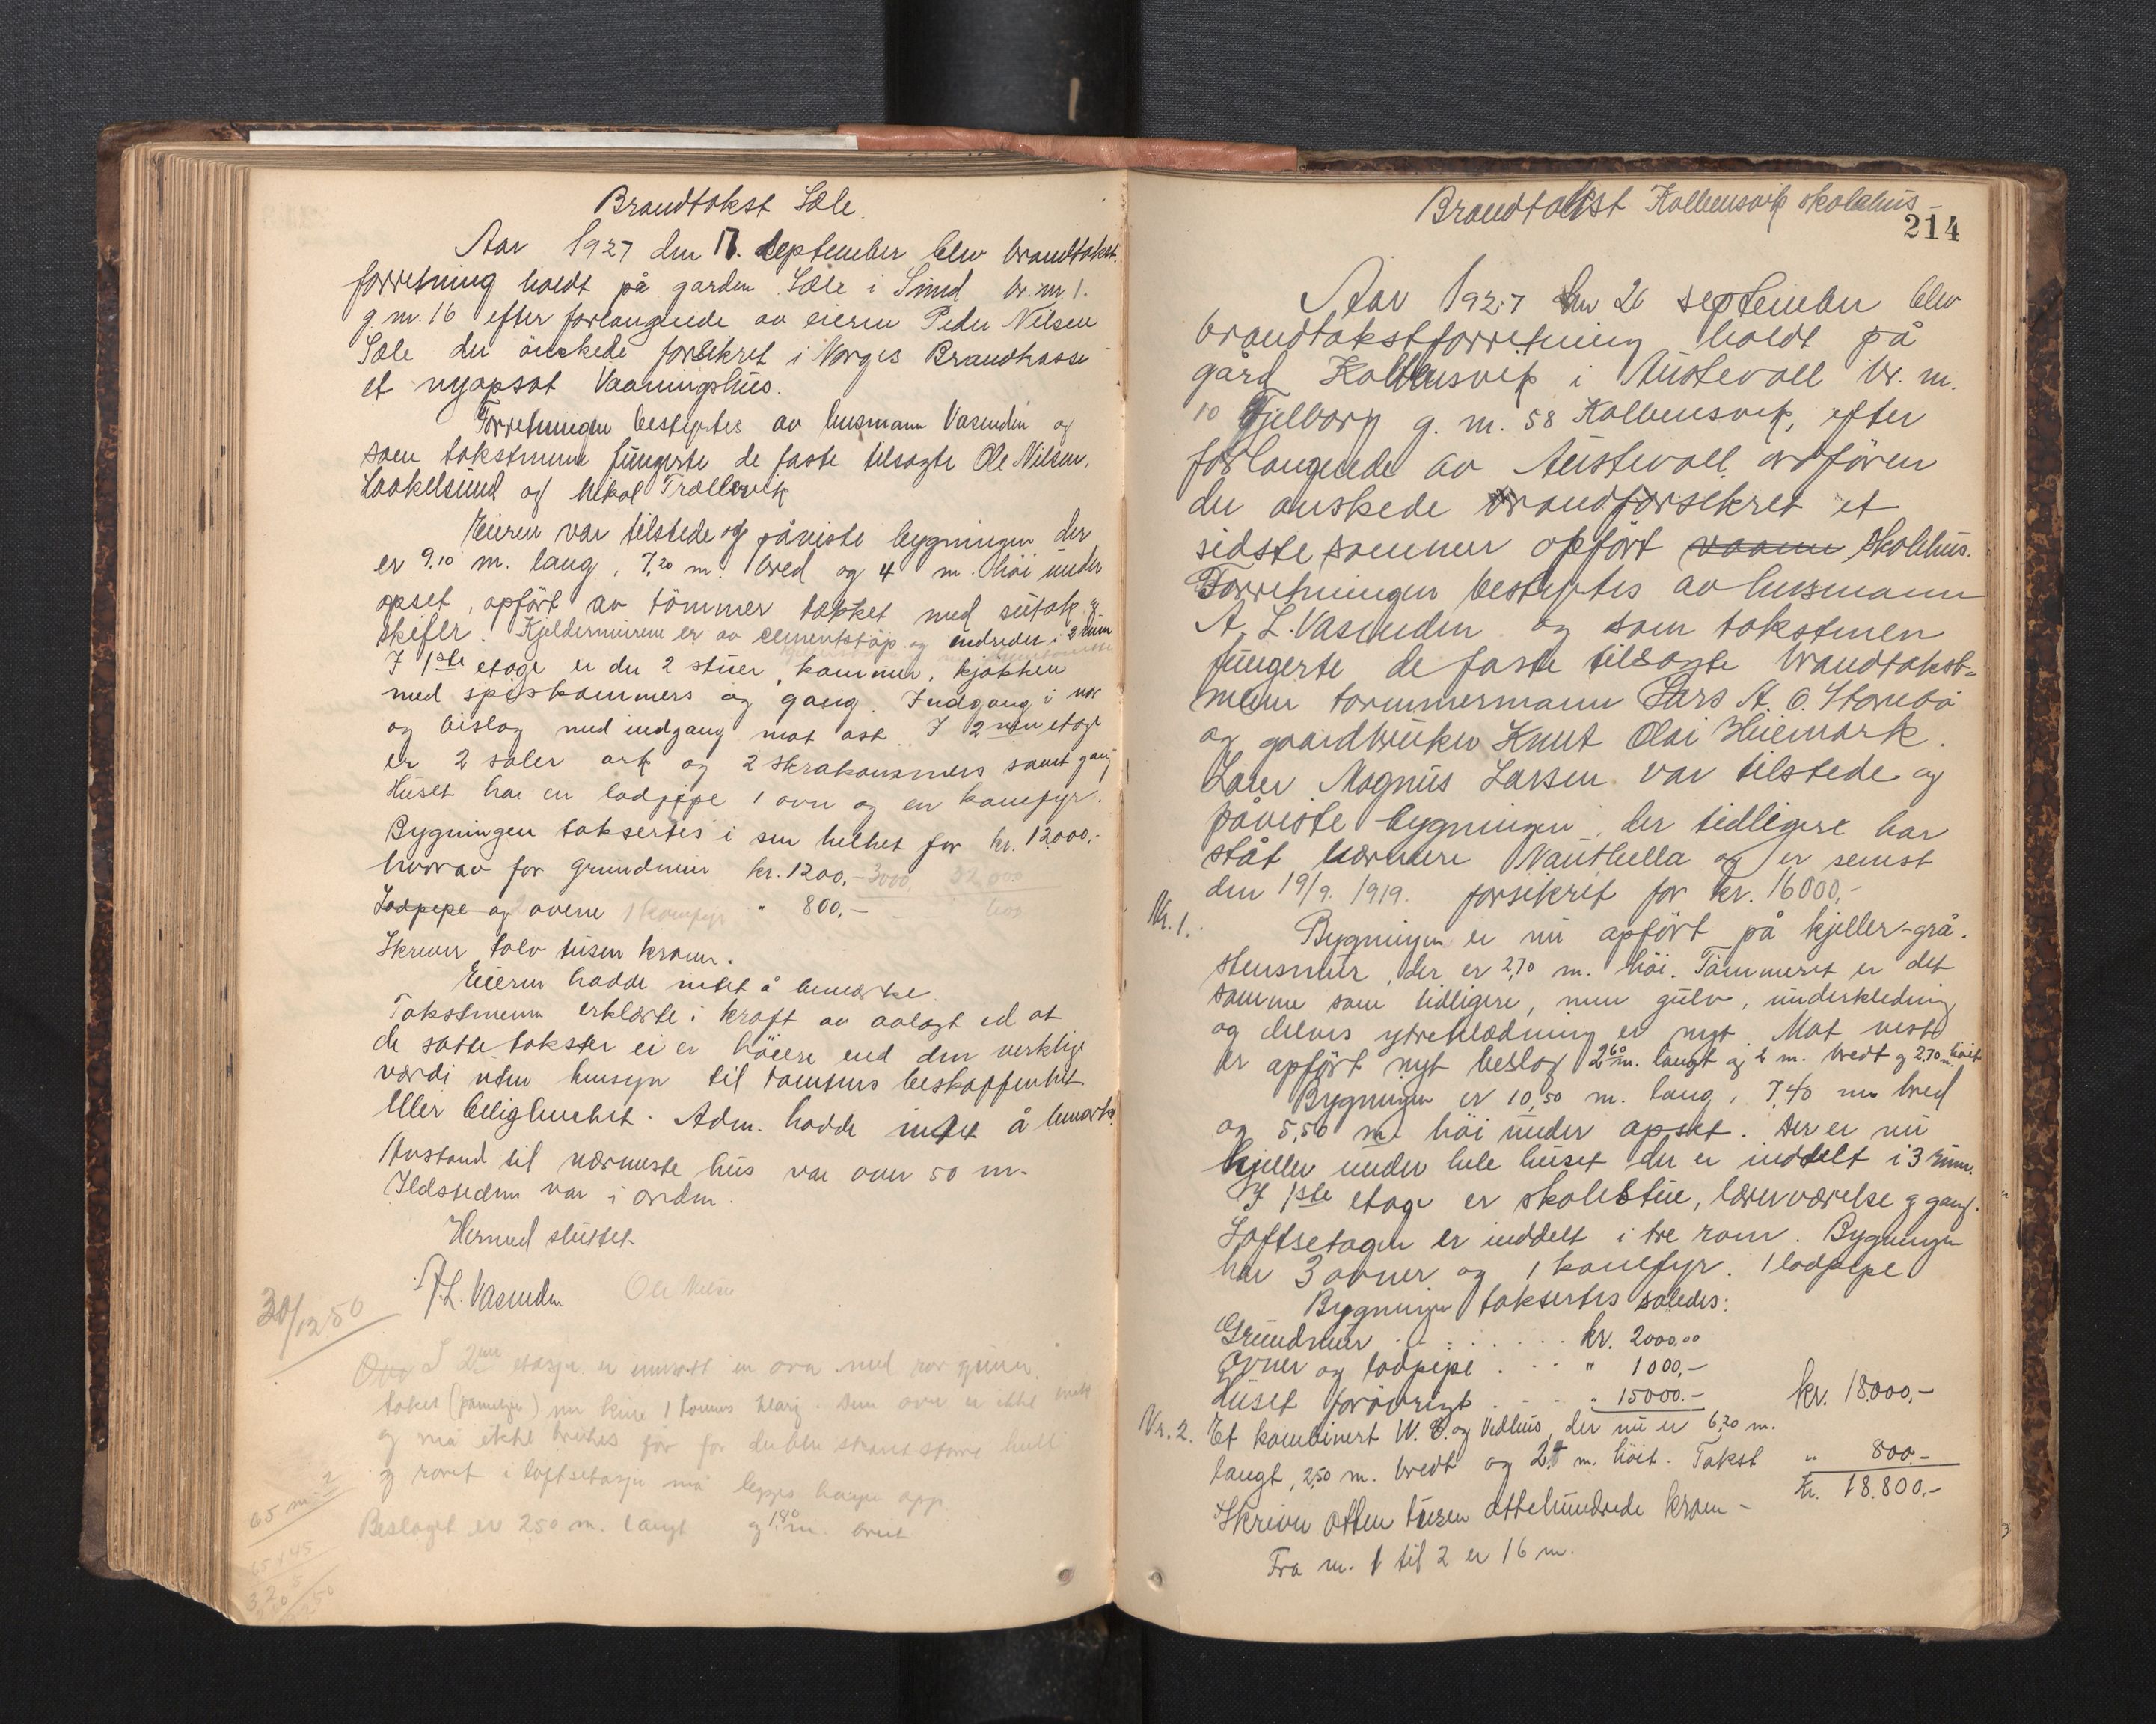 Brandtakst Sæle.
Aar 1927 den 17. september blev brandtakst.
forretning holdt på garden Sæle i Sund br. nr. 1.
g. nr. 16 efter forlangende av eieren Peder Nilsen
Sæle der önskede forsikret i Norges Brandkasse
et nyopsat Vaaningshus.
Forretningen bestyrtes av lensmann Vasenden og
som takstmenn fungerte de faste tilsagte Ole Nilsen,
og Nikol Trællevik
Eieren var tilstede og påviste bygningen der
er 9,10 m. lang, 7,20 m. bred og 4 m. höi under
opset, opfört av tömmer tækket med sutak g
skifer. Kjeldermurene er av cementstöp og indredet i 2 rum
I 1ste etage er der 2 stuer, kammer, kjøkken
med spiskammers og gang. Indgang i nor
og bislag med indgang mot øst. I 2nen etage
er 2 saler ark og 2 skrakammers samt gang
Huset har en ladpipe 1 ovn og en komfyr.
Bygningen taksertes i sin helhet for kr. 12000.-
hvorav for grundmur kr. 1200,- 3000, 32000
Ladpipe og 2 ovene 1 komfyr " 800,-
Skriver tolv tusen kroner.
Eieren hadde intet å bemærke.
Takstmenn erklærte i kraft av avlagt ed at
de satte takster ei er höiere end den verklige
værdi uten hensyn til tomtens beskaffenhet
eller belighenhet. Adm. hadde intet å bemærke.
Avstand til nærmeste hus var over 50 m.
Ildstedene var i orden.
Hermed sluttet
A. L. Vasenden Ole Nilsen
30/12 50
I 2nen etasje er innsatt en ovn med rør gjenn.
taket
og må ikke brukes før
g røret i loftsetasje må legges høyre opp
65 m. 2
Beslaget er 250 m. langt og 180 m. bredt
65 x 45
320
Brandtakst Kalvensvik skolehus
214
Aar 1927 den 26 september blev
brandtakstforretning holdt på
gård Kalvensvik i Austevoll br. nr.
10 Fjelborg g. nr. 58 Kalvensvik, efter
forlangende av Austevoll ordfören
der önskede brandforsikret et
sidste sommer opfört vaane skolehus.
Forretningen bestyrtes av lensmann
A. L. Vasenden og som takstmen
fungerte de faste tilsagte brandtakst-
menn tømmermann Lars A. O. Storebø
og gaardbruker Knut Olai Huemark.
Lærer Magnus Larsen var tilstede og
påviste bygningen, der tidligere har
ståt nærmere Nauthella og er senest
den 19/9. 1919. forsikret for kr. 16000,-
Nr. 1. Bygningen er nu opfört på kjeller-grå.
stensmur, der er 2,70 m. höi. Tömmeret er det
samme som tidligere, men gulv, underkledning
og delvis ytreklædning er nyt. Mot vest
er opfört nyt beslag 2,60 m. langt og 2 m. bredt og 2,70 m. höit
Bygningen er 10,50 m. lang, 7,40 m bred
og 5,50 m. höi under opset. Der er nu
kjeller under hele huset der er inddelt i 3 rum.
I 1ste etage er skolestue, lærerværelse g gang.
Loftsetagen er inddelt i tre rom. Bygningen
har 3 ovner og 1 komfyr. 1 ladpipe
Bygningen taksertes således:
Grundmur . . . . . . kr. 2000.00
Ovner og ladpipe . . . " 1000,-
Huset forövrigt . . . " 15000.- kr. 18000,-
Nr. 2. Et kombinert W. C. og Vedhus, der nu er 6,20 m.
langt, 2,50 m. bredt og 2, m. höit. Takst " 800.-
Kr. 18.800.-
Skriver atten tusen ottehundrede kroner -
Fra nr. 1 til 2 er 16 m.